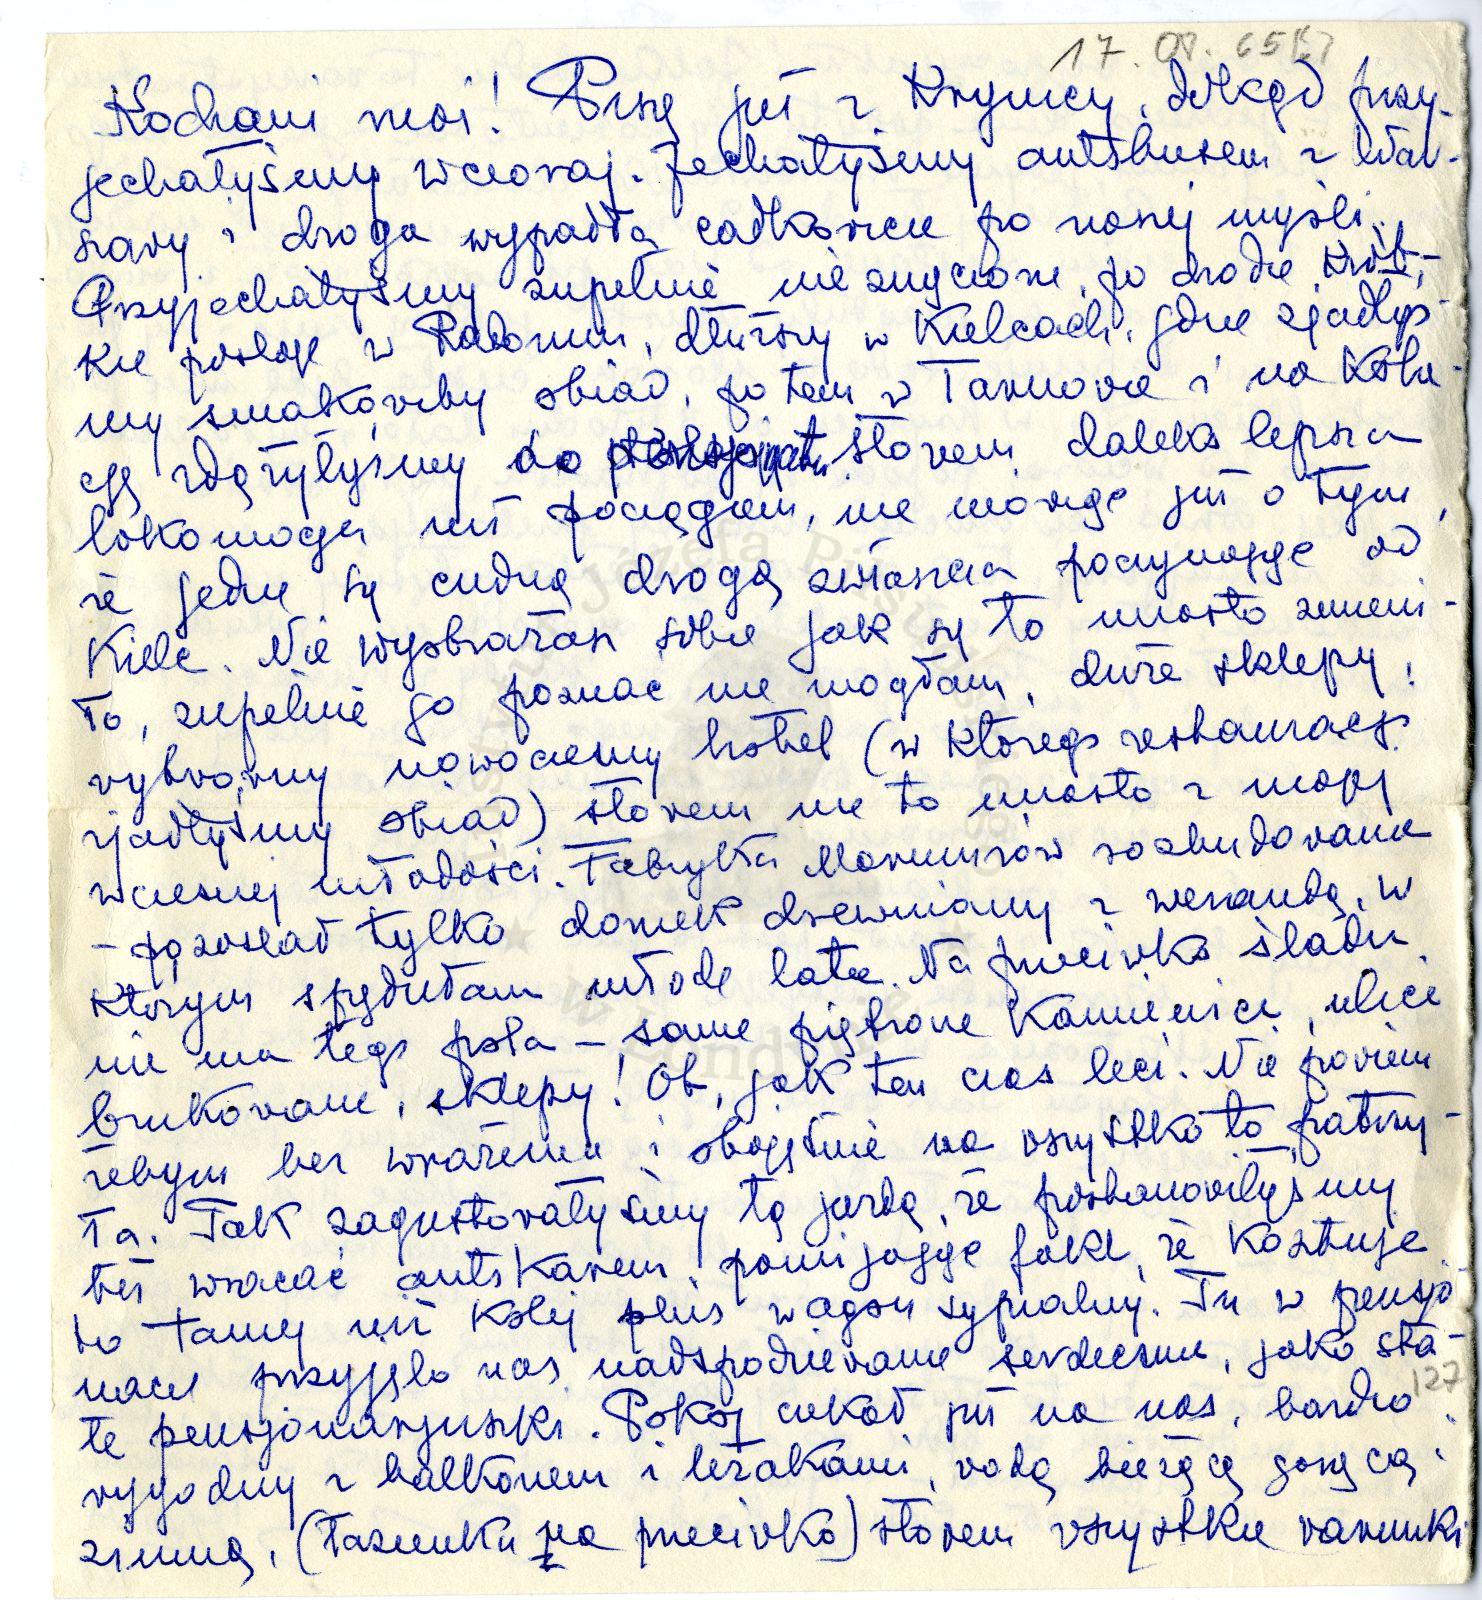 17. 65
Kochani moi! Piszę już z Krynicy, dokąd przy-
jechałyśmy wczoraj. Jechałyśmy autobusem z War-
szawy i droga wypadła całkowicie po naszej myśli.
Przyjechałyśmy zupełnie nie zmęczone, po drodze krót-
kie postoje w Radomiu, dłuższy w Kielcach, gdzie zjadłyś-
my smakowity obiad, potem w Tarnowie i na kola-
cję zdążyłyśmy do słowem daleko lepsza
lokomocja niż pociągiem, nie mówiąc już o tym,
że jedzie się cudną drogą zwłaszcza poczynając od
Kielc. Nie wyobrażasz sobie jak się to miasto zmieni-
ło, zupełnie go poznać nie mogłam, duże sklepy,
wytworny nowoczesny hotel (w którego restauracji
zjadłyśmy obiad) słowem nie to miasto z mojej
wczesnej młodości. Fabryka Marmurów rozbudowana
– pozostał tylko domek drewniany z werandą, w
którym spędziłam młode lata. Na przeciwko śladu
nie ma tego pola – same piętrowe kamienice, ulice
brukowane, sklepy! Ot, jak ten czas leci. Nie powiem
żebym bez wrażenia i obojętnie na wszystko to patrzy-
ła. Tak zagustowałyśmy tą jazdą, że postanowiłyśmy
też wracać autokarem, pomijając fakt, że kosztuje
to taniej niż kolej plus wagon sypialny. Tu w pensjo-
nacie przyjęto nas nadspodziewanie serdecznie, jako sta-
127
łe pensjonarjuszki. Pokój czekał już na nas, bardzo
wygodny z balkonem i leżakami, wodą bieżącą gorącą i
zimną, (łazienka na przeciwko) słowem wszystkie warunki
Józefa Piłsudskiego
w Londynie